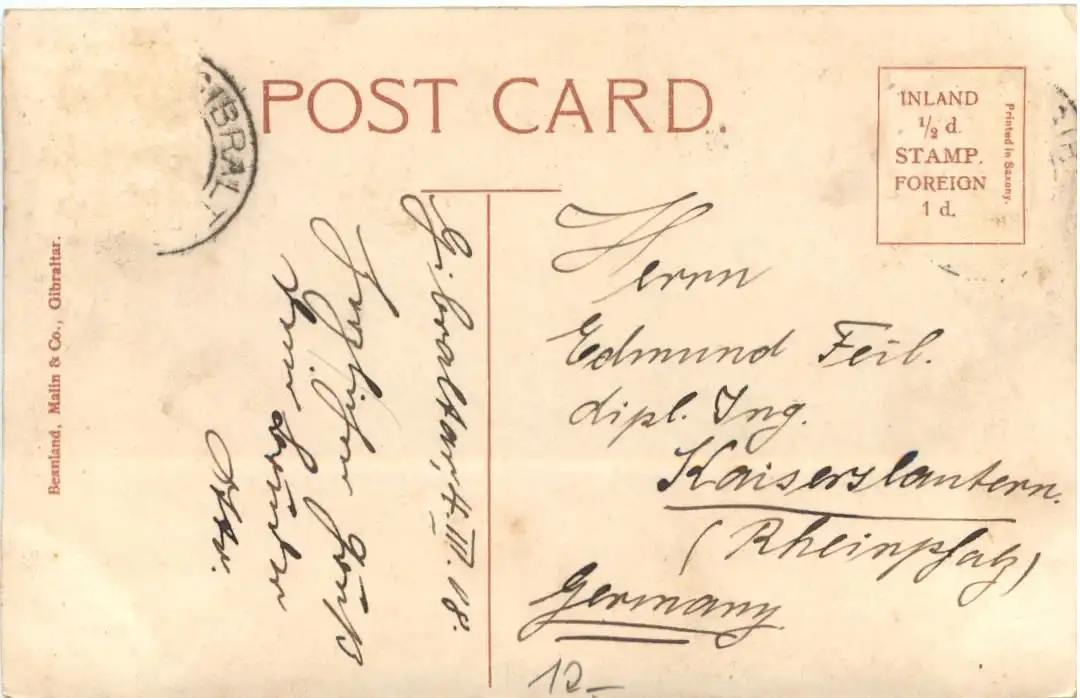 POST CARD.
INLAND
½ d.
STAMP.
FOREIGN
1 d.
Printed in Saxony.
Beanland, Malin & Co., Gibraltar.
GIBRAL
Gibraltar, 4.III.08.
Herzlichen Gruß
Otto.
Herrn
Edmund Feil.
dipl. Ing.
Kaiserslautern.
(Rheinpfalz)
Germany
12–